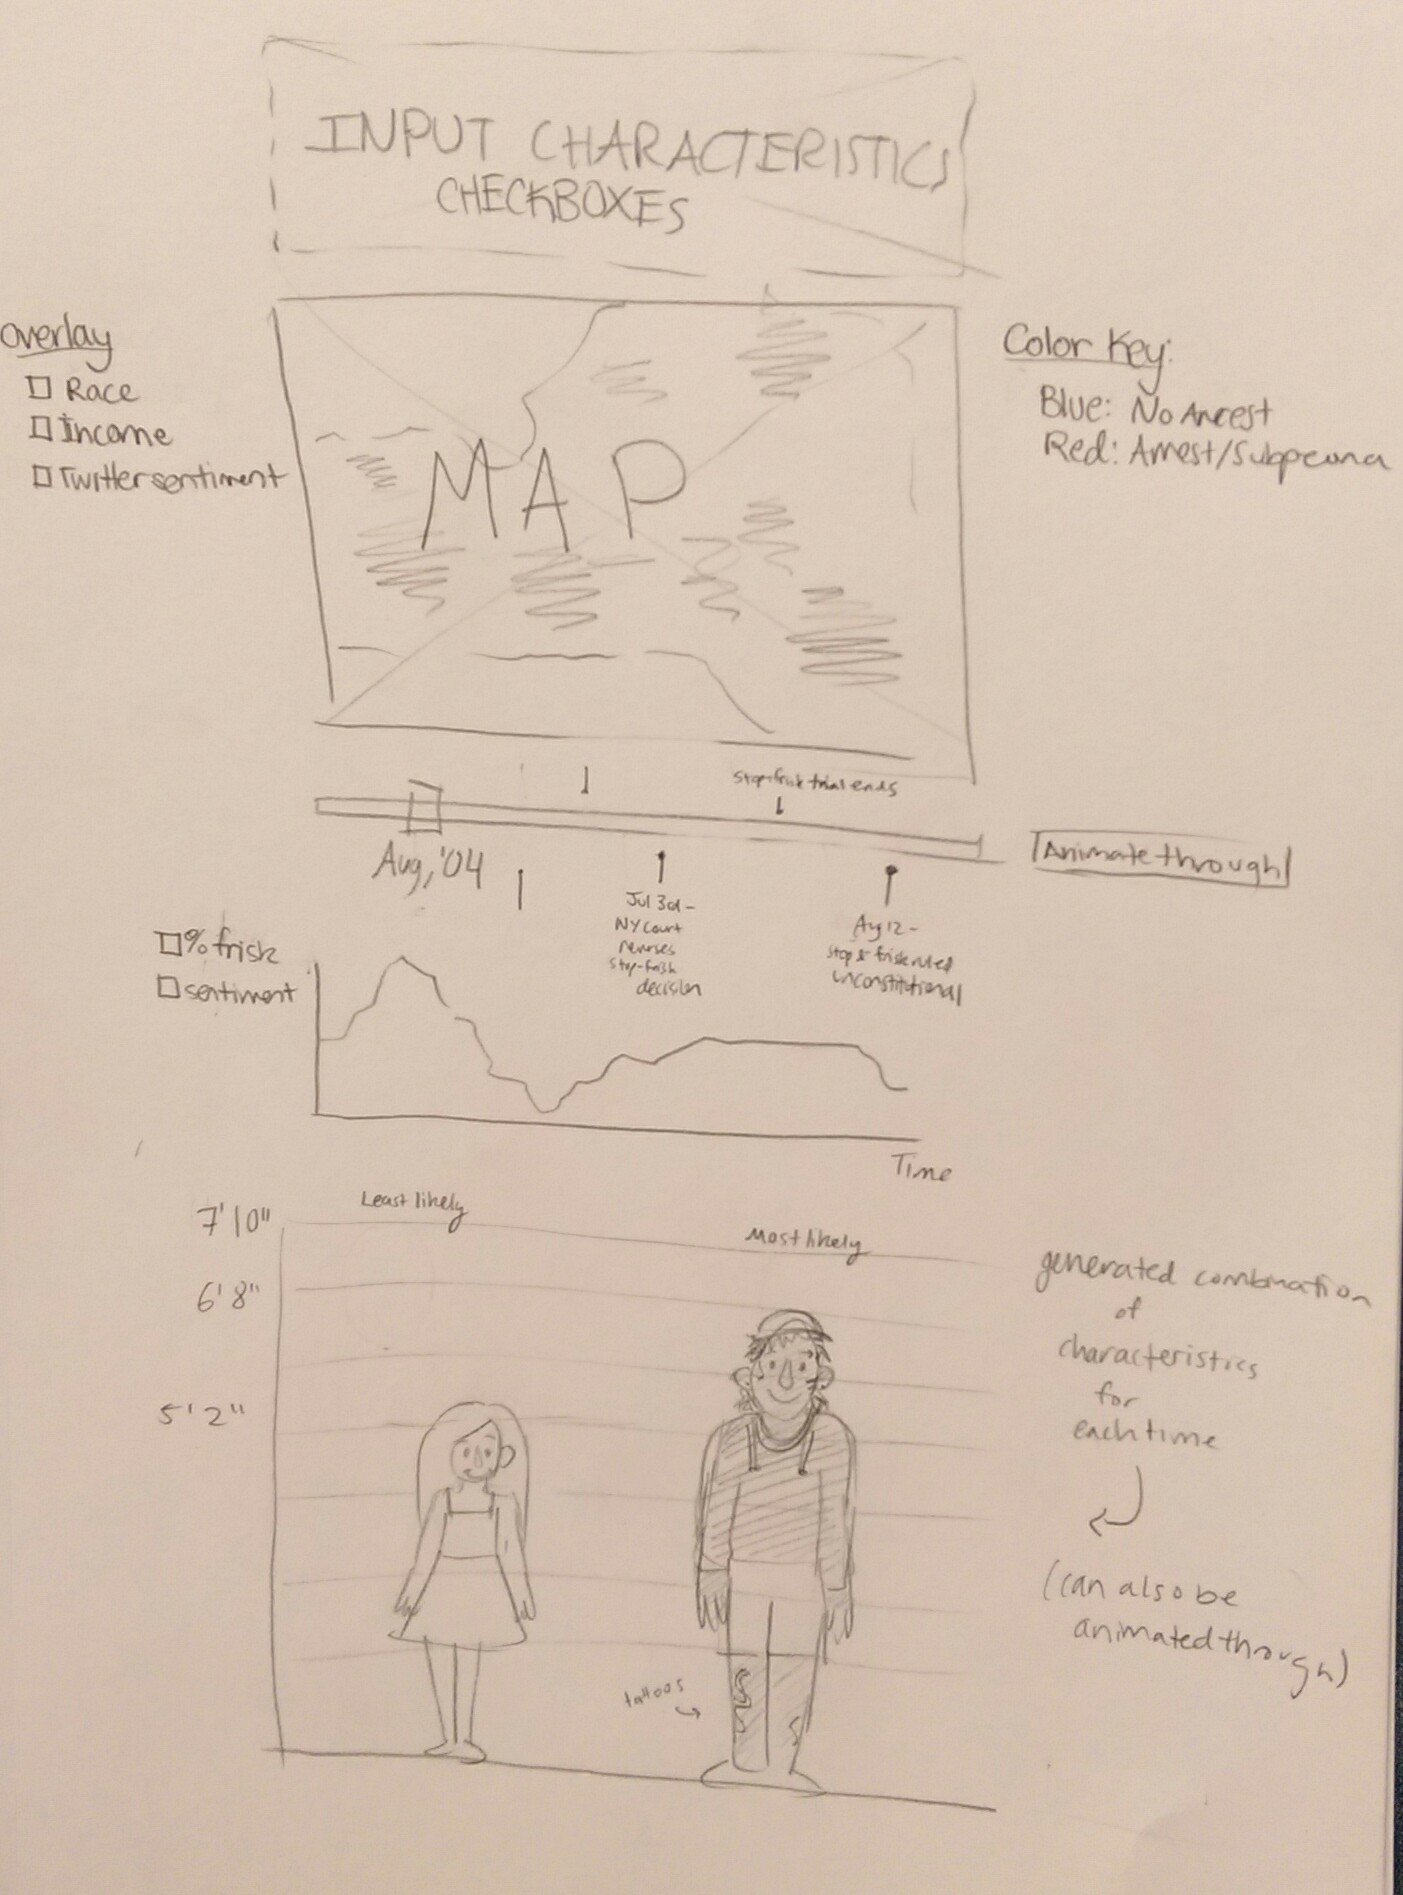 INPUT CHARACTERISTICS
CHECKBOXES
Overlay
Race
Income
Twitter sentiment
MAP
Color Key:
Blue: No Arrest
Red: Arrest/Subpeona
Stop+frisk trial ends
Aug, '04
Animate through
Jul 30 -
NY court
reverses
stop-frisk
decision
Aug 12 -
stop & frisk ruled
unconstitutional
% frisk
sentiment
Time
Least likely
Most likely
7'10"
6'8"
5'2"
generated combination
of
characteristics
for
each time
(can also be
animated through)
tattoos